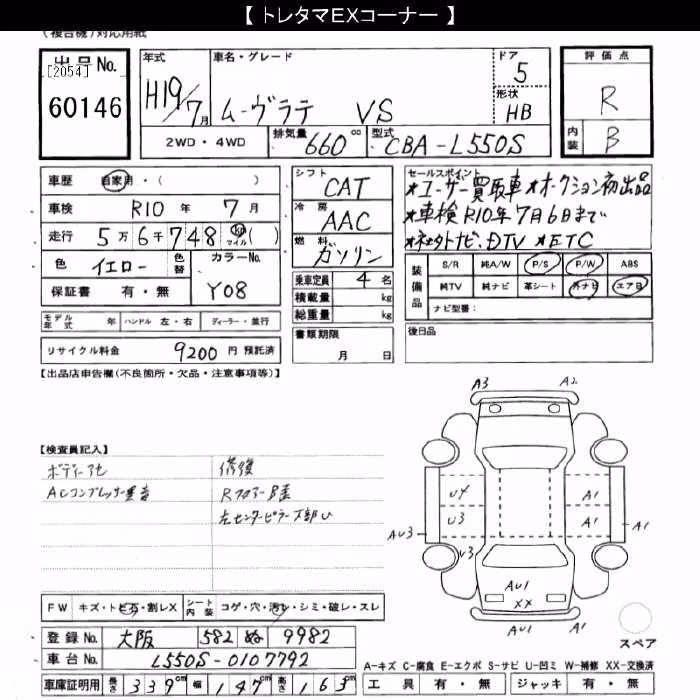 【 トレタマEXコーナー 】
(複合機)対応用紙
出品No.
[2054]
60146
年式 H19/7月
車名・グレード ムーヴラテ VS
ドア 5
形状 HB
2WD・4WD
排気量 660 cc
型式 CBA-L550S
評価点 R
内装 B
車歴 自家用・( )
車検 R10年 7月
走行 5万6千748 km マイル ( )
色 イエロー 色替
カラーNo. Y08
保証書 有・無
シフト CAT
冷房 AAC
燃料 ガソリン
乗車定員 4名
積載量 kg
総重量 kg
書類期限
月 日
セールスポイント
★ユーザー買取車★オークション初出品
★車検R10年7月6日まで
★社外ナビ、DTV ★ETC
装備品
S/R 純A/W P/S P/W ABS
純TV 純ナビ 革シート 外ナビ エアB
ナビ型番:
後日品
モデル年式 年 ハンドル 左・右 ディーラー・並行
リサイクル料金 9200円 預託済
【出品店申告欄(不良箇所・欠品・注意事項等)】
【検査員記入】
ボディーアセ
ACコンプレッサー異音
修復
Rフロアー
左センターピラー下部U
FW キズ・トビ石・割レX
シート内装 コゲ・穴・汚レ・シミ・破レ・スレ
登録No. 大阪 582 ぬ 9982
車台No. L550S-0107792
車庫証明用 長さ 339cm 幅 147cm 高さ 163cm
A3 A2
U4 A1
AU3 U3 A1 A1
U3
AU1
XX
スペア
A-キズ C-腐食 E-エクボ S-サビ U-凹ミ W-補修 XX-交換済
工具 有・無 ジャッキ 有・無